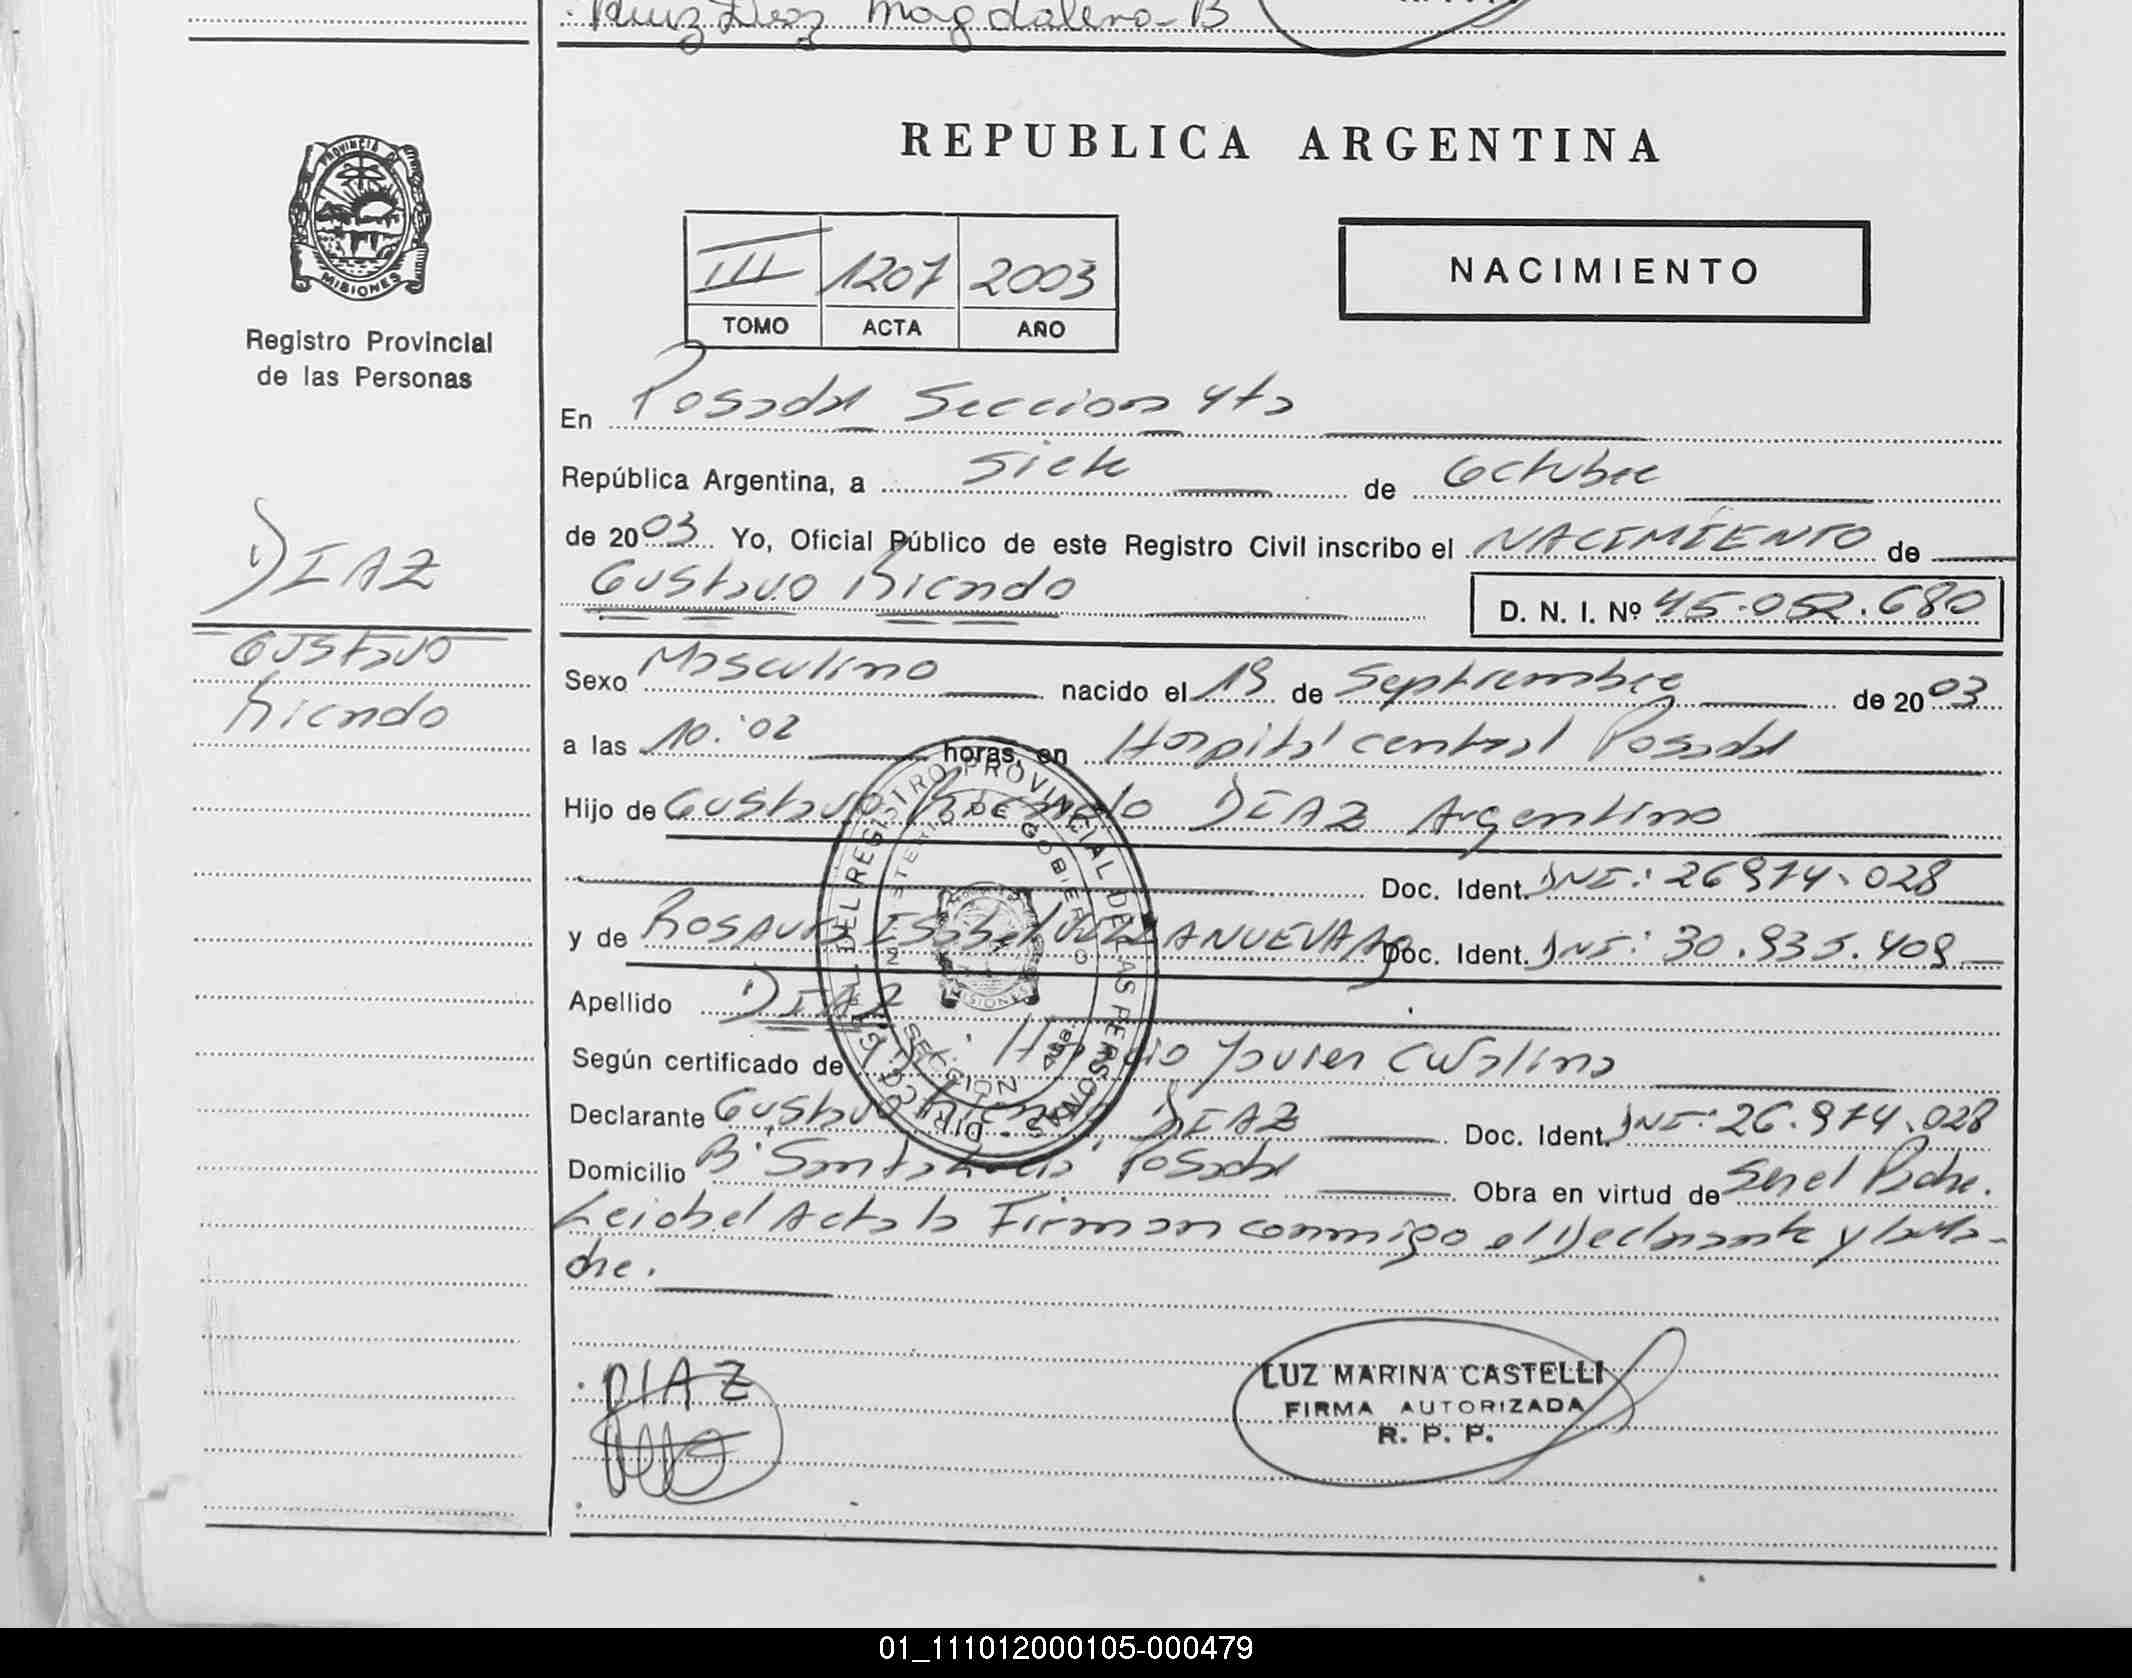 Ruiz Diaz Magdalena-B
PROVINCIA DE
MISIONES
Registro Provincial
de las Personas
REPUBLICA ARGENTINA
III 1207 2003
TOMO ACTA AÑO
NACIMIENTO
En Posadas Seccion 4ta
República Argentina, a Siete de Octubre
de 2003 Yo, Oficial Público de este Registro Civil inscribo el NACIMIENTO de
Gustavo Ricardo D. N. I. Nº 45.052.680
DIAZ
Gustavo
Ricardo
Sexo Masculino nacido el 19 de Septiembre de 2003
a las 10:02 horas, en Hospital central Posadas
Hijo de Gustavo Ricardo DIAZ Argentino
Doc. Ident. DNI: 26.974.028
y de Rosaura Isabel VILLANUEVA Doc. Ident. DNI: 30.935.409
Apellido DIAZ
Según certificado de Horacio Javier
Declarante Gustavo Ricardo DIAZ Doc. Ident. DNI: 26.974.028
Domicilio B° "Santa Lucia" Posadas Obra en virtud de Ser el Padre.
Leida el Acta la Firman conmigo el Declarante y la Ma-
dre.
DIRECC. GRAL. DEL REGISTRO PROVINCIAL DE LAS PERSONAS
MINISTERIO DE GOBIERNO
SECCION 4ta.
MISIONES
DIAZ
LUZ MARINA CASTELLI
FIRMA AUTORIZADA
R. P. P.
01_111012000105-000479